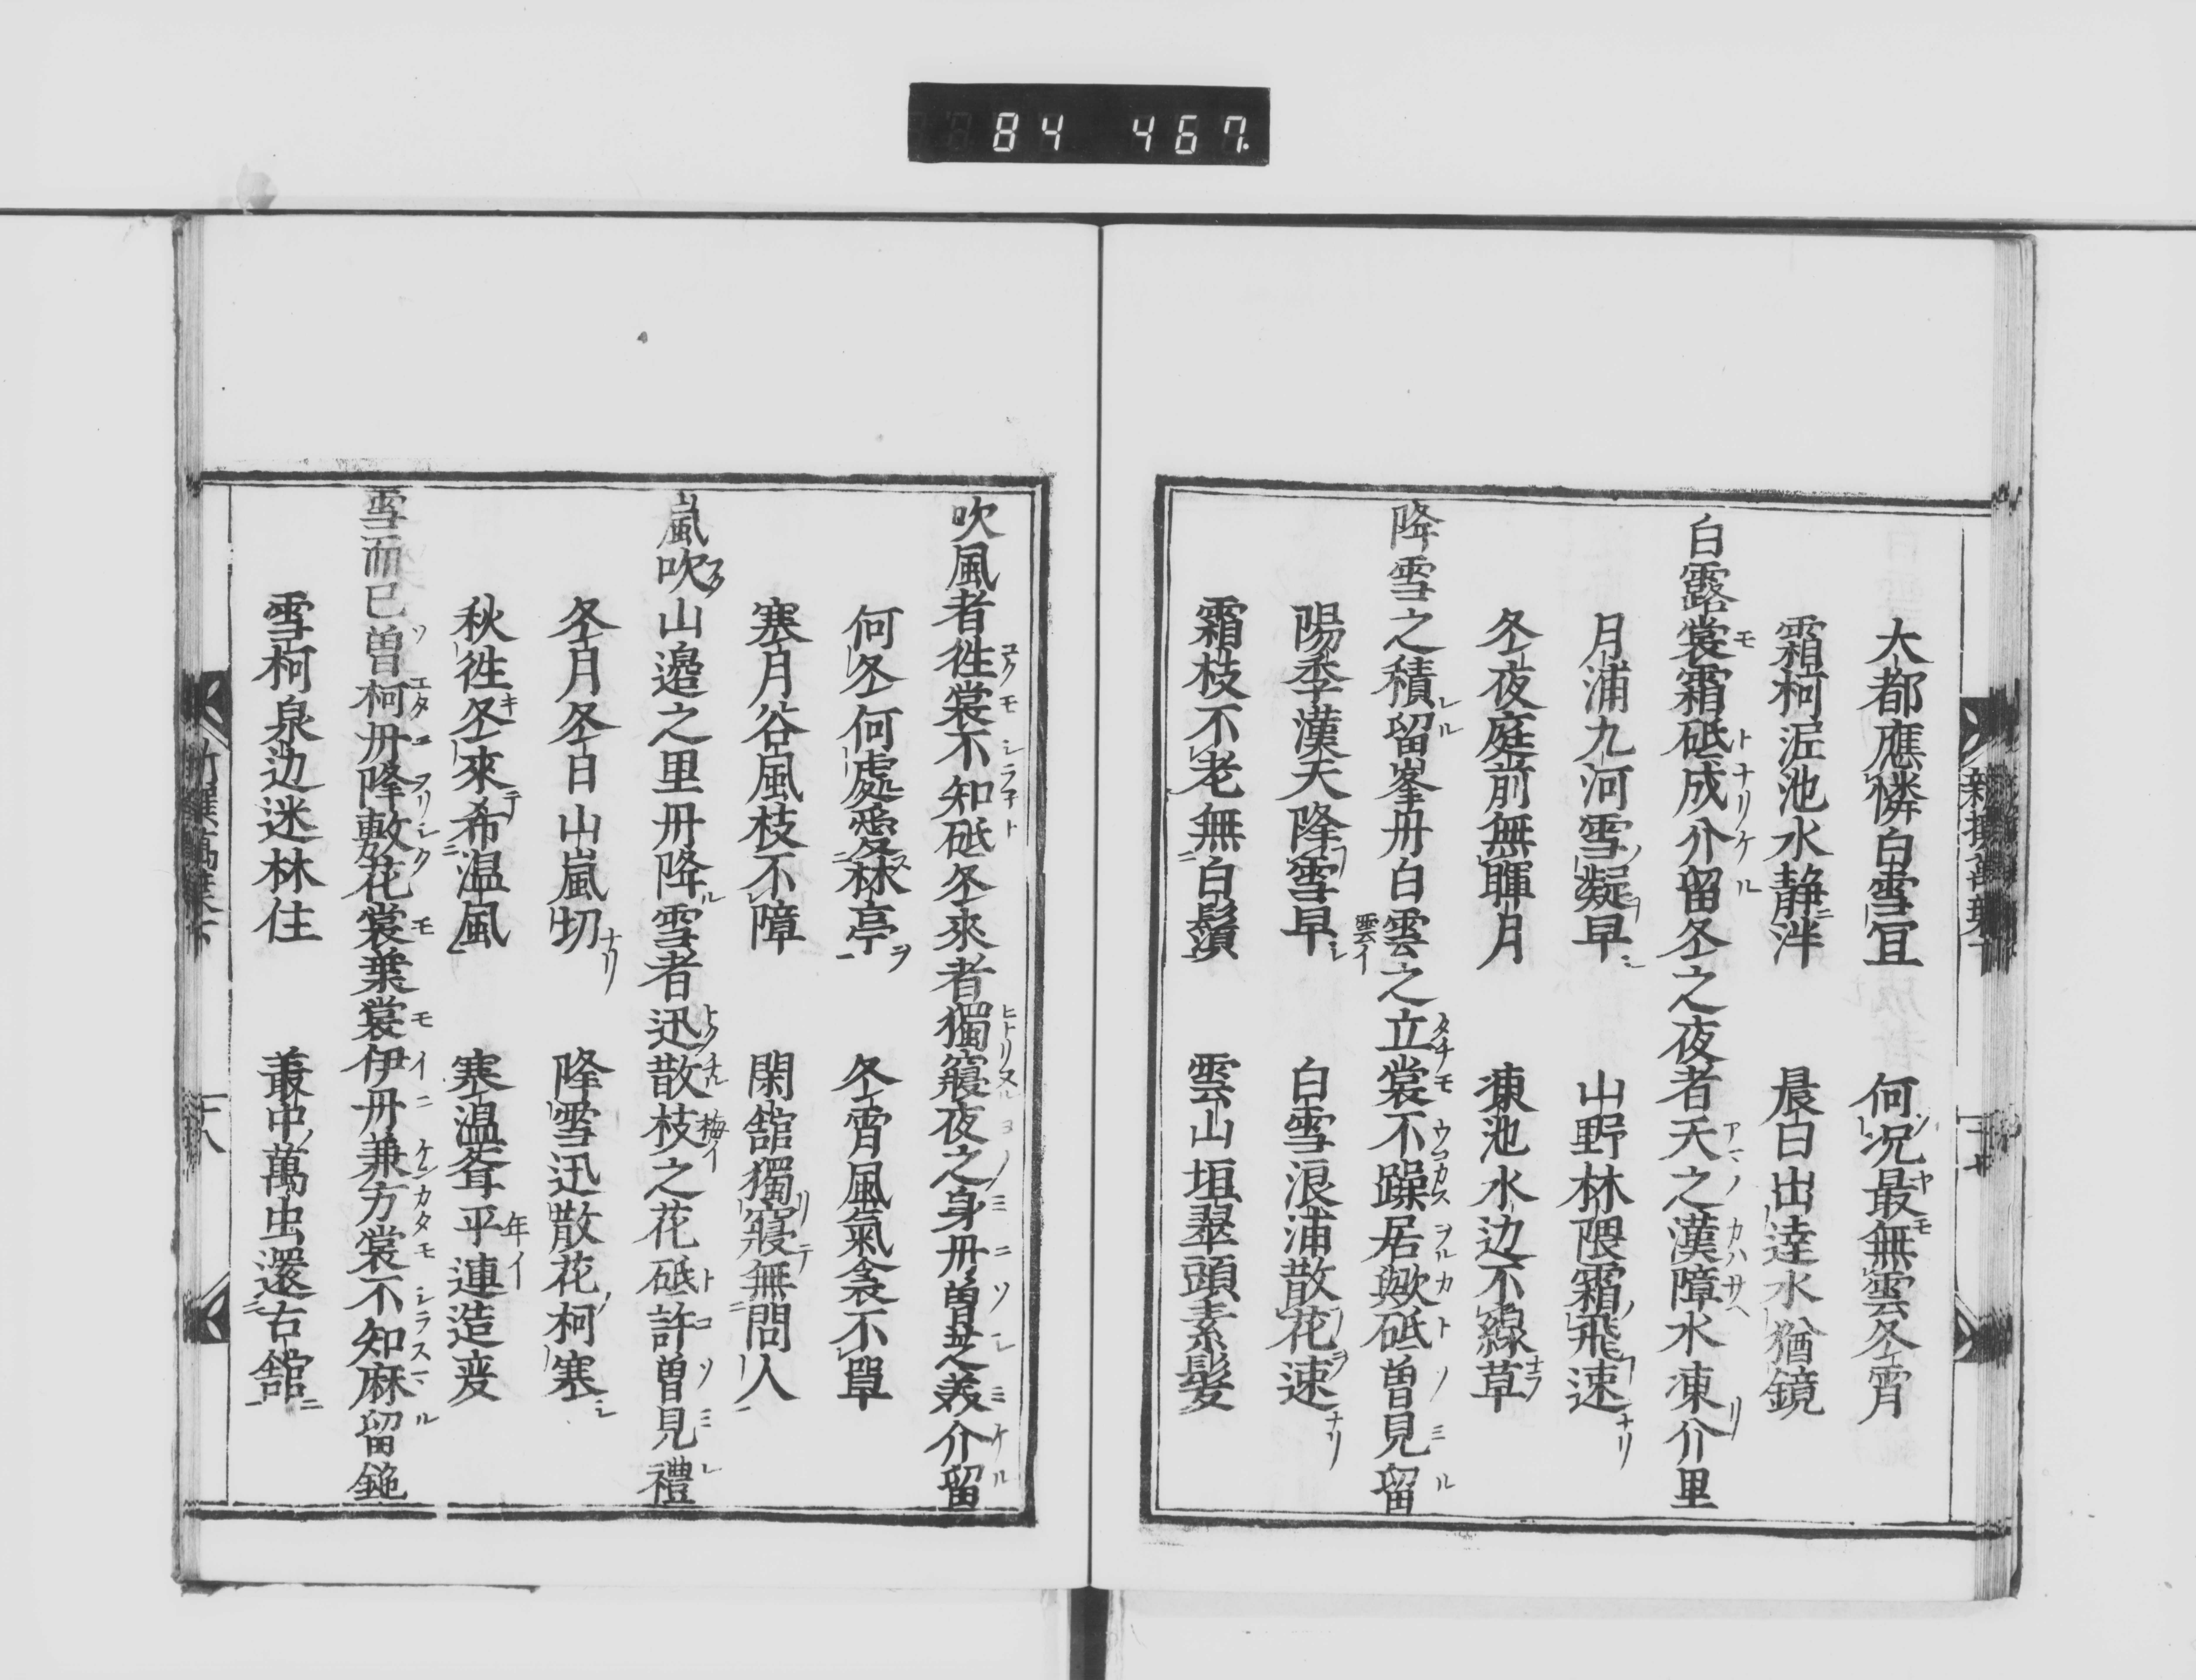 84 467
大都應憐白雪冝　何况最無雲冬宵月
霜柯泥池水静泮　晨白出逹水猶鏡
白露裳霜砥成介留冬之夜者天之漢障水凍介里
月浦九河雪凝早　山野林隈霜飛速
冬夜庭前無暉月　凍池水边不線草
降雪之積留峯丹白雲之立裳不躁居歟砥曽見留
陽季漢天降雪早　白雪浪浦散花速
霜枝不老無白鬚　雲山垣翠頭素髪
吹風者徃裳不知砥冬來者獨寢夜之身丹曽芝美介留
何冬何處愛林亭　冬宵風氣衾不單
寒月谷風枝不障　閑舘獨寢無問人
嵐吹山邉之里丹降雪者迅散枝之花砥許曽見禮
冬月冬日山嵐切　降雪迅散花柯寒
秋徃冬來希温風　寒温耷平連造変
雪而已曽柯丹降敷花裳葉裳伊丹兼方裳不知麻留鉇
雪柯泉边迷林住　叢中萬虫還古舘